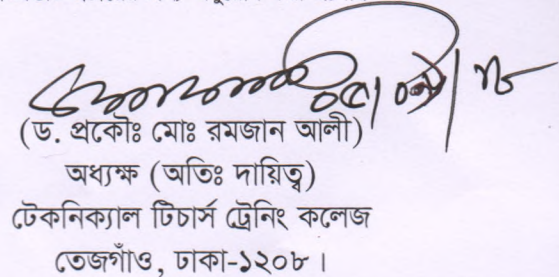 (ড. প্রকৌঃ মোঃ রমজান আলী)
অধ্যক্ষ (অতিঃ দায়িত্ব)
টেকনিক্যাল টিচার্স ট্রেনিং কলেজ
তেজগাঁও, ঢাকা-১২০৮।